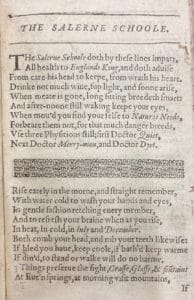 THE SALERNE SCHOOLE.
The Salerne Schoole doth by these lines impart,
All health to Englands King, and doth aduise
From care his head to keepe, from wrath his heart.
Drinke not much wine, sup light, and soone arise,
When meate is gone, long sitting breedeth smart:
And after-noone still waking keepe your eyes,
When mou'd you find your selfe to Natures Needs,
Forbeare them not, for that much danger breeds,
Vse three Physitions still; first Doctor Quiet,
Next Doctor Merry-man, and Doctor Dyet.
Rise earely in the morne, and straight remember,
With water cold to wash your hands and eyes,
In gentle fashion retching euery member,
And to refresh your braine when as you rise,
In heat, in cold, in July and December.
Both comb your head, and rub your teeth likewise:
If bled you haue, keep coole, if bath'd keep warme
If din'd, to stand or walke will do no harme.
3 Things preserue the sight, Grasse, Glasse, & fõutains
At Eue'n springs, at morning visit mountains,
If